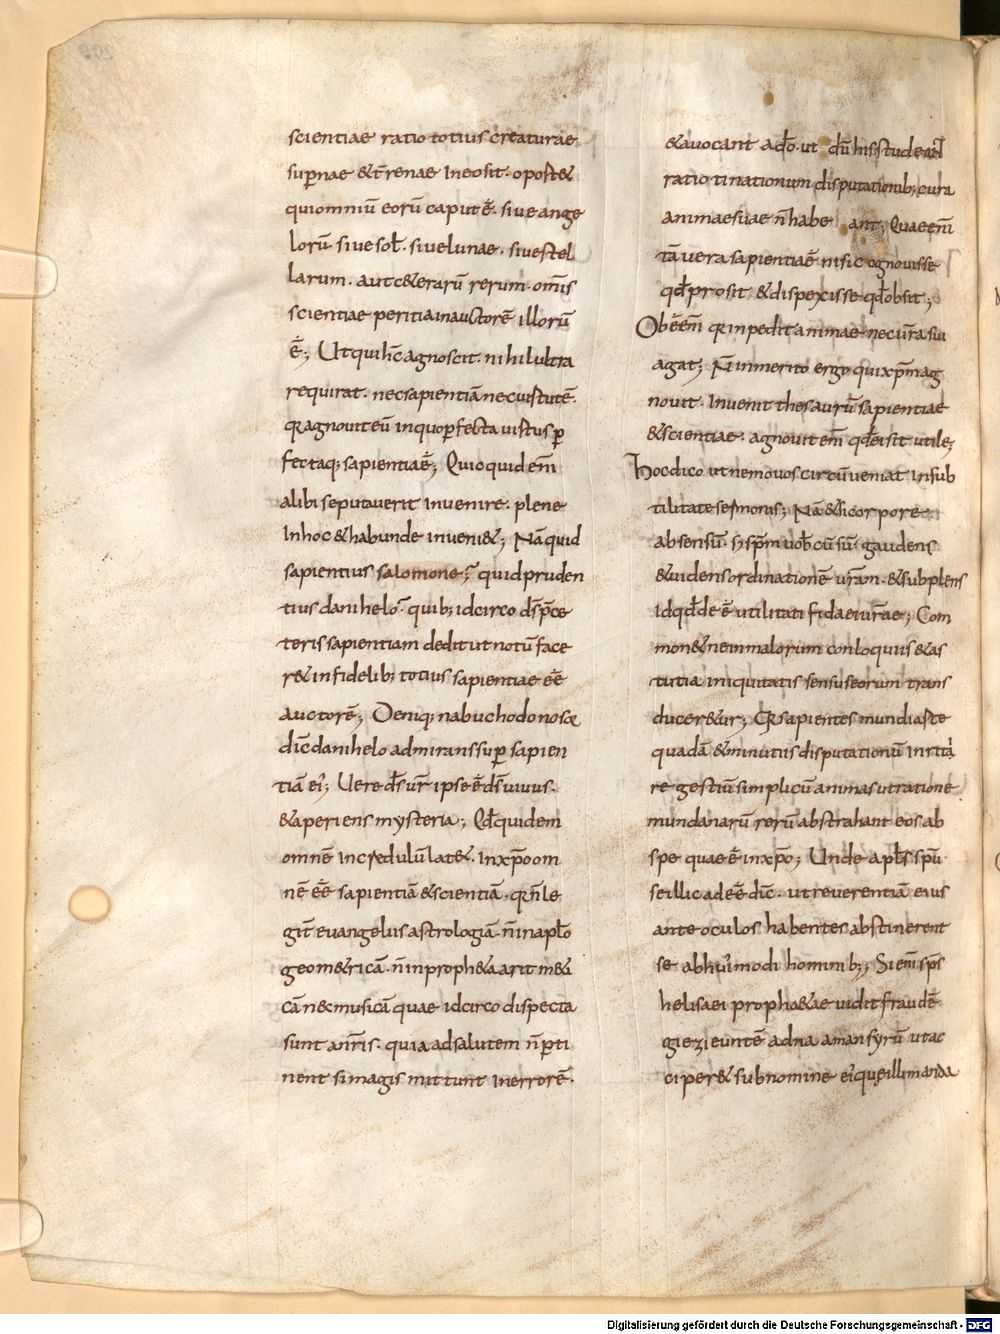 scientiae ratio totius creaturae
supnae &t̄renae Ineosit· oportet&
quiomniū eorū caput ē· siue ange
lorū· siue sol̄· siuelunae· siuestel
larum· aut c&erarū rerum· om̄is
scientiae peritia inauctorē illorū
ē; Ut qui hc̄ agnoscit· nihil ultra
requirat· nec sapientiā nec uirtutē·
qr agnouit eū in quo pfecta uirtus p
fectaq; sapientia ē; Quicquid em̄
alibi se putauerit Inuenire· plene
In hoc & habunde inueni&; Nā quid
sapientius salomone; quid pruden
tius danihelo· quib; idcirco d̄s p̄ce
teris sapientiam dedit ut notū face
r& infidelib; totius sapientiae eē
auctorē; Deniq; nabuchodonosor
dic̄ danihelo admirans sup sapien
tiā ei; Uere d̄s ur̄ ipse ē d̄s uiuus·
& aperiens mysteria; Qd̄ quidem
omnē incredulū lat&· In xp̄o om
nē eē sapientiā & scientiā· qr n̄ le
git̄ euangeliis astrologiā· n̄ in apl̄o
geom&ricā· n̄ in proph&a aritm&i
cā nec musicā quae idcirco dispecta
sunt a nr̄is· quia ad salutem n̄ pti
nent si magis mittunt In errorē·
& auocant a dō· ut dū his student
ratiotinationum disputationib; cura
animae suae n̄ habe ant; Quae em̄
tā uera sapientia ē nisi c ognouisse
qd̄ prosit & dispexisse qd̄ obsit;
Obē em̄ qr inpedit animae nec ur̄a sui
agat; N̄ inmerito ergo qui xp̄m ag
nouit· Inuenit thesaurū sapientiae
& scientiae· agnouit em̄ qd̄ ei sit utile;
Hoc dico ut nemo uos circūueniat In sub
tilitate sermonis; Nā & si corpore
absens ū· s; sp̄m uob̄ cū sū· gaudens
& uidens ordinationē ur̄am· & subplens
Id qd̄ de ē utilitati fidaei ur̄ae; Com
mon& ne in malorum conloquiis & as
tutia iniquitatis sensus eorum trans
ducer&ur; Qr sapientes mundi aste
quadā & minutiis disputationū Inrita
re gestiū simpliciū animas ut ratione
mundanarū rerū abstrahant eos ab
spe quae ē in xp̄o; Unde apl̄s sp̄u
se illic adeē dic̄· ut reuerentiā eius
ante oculos habentes abstinerent
se ab hui modi hominib;; Si em̄ sp̄s
helisaei proph&ae uidit fraudē
giezi euntē ad naaman syrū ut ac
ciper& sub nomine ei quę illi manda